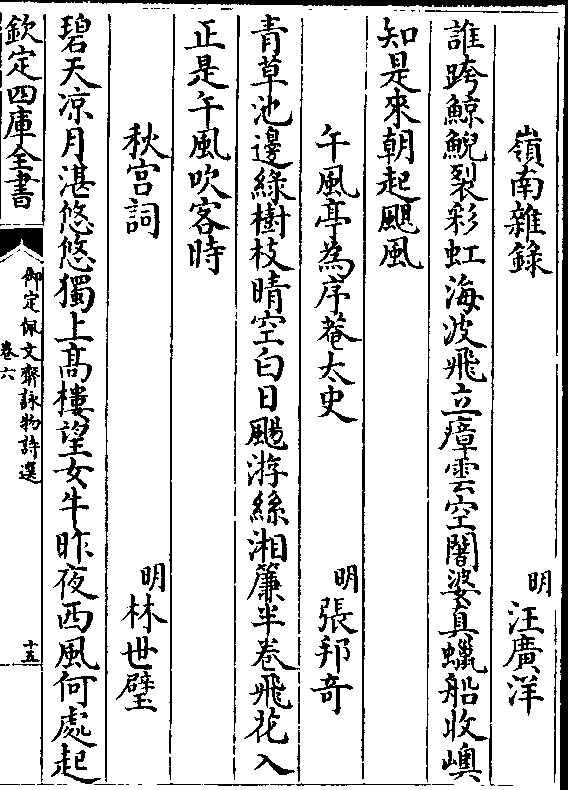 嶺南雜錄　明　汪廣洋
誰跨鯨鯢裂彩虹海波飛立瘴雲空闍婆真蠟船收嶼
知是來朝起颶風
午風亭為序菴太史　明　張邦奇
青草池邊綠樹枝晴空白日颺游絲湘簾半卷飛花入
正是午風吹客時
秋宫詞　明　林世璧
碧天凉月湛悠悠獨上髙樓望女牛昨夜西風何處起
欽定四庫全書
御定佩文齋詠物詩選
卷六
十五